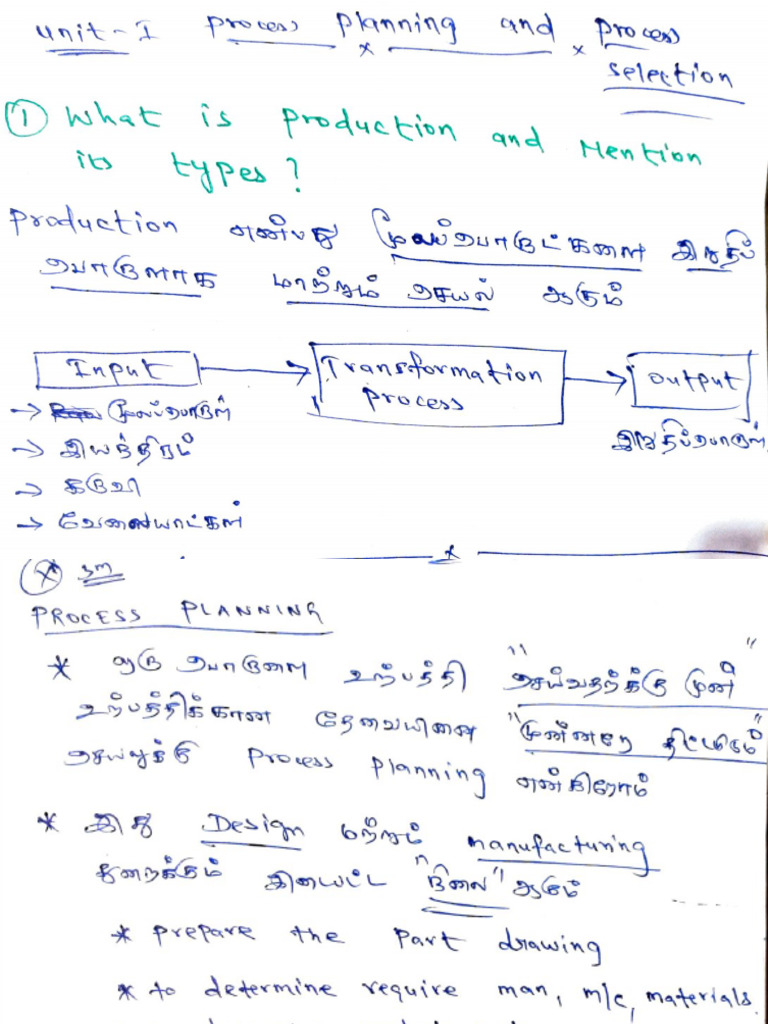 unit-I process planning and process
selection
① What is production and Mention
its types?
Production என்பது மூலப்பொருட்களை இறுதிப்
பொருளாக மாற்றும் செயல் ஆகும்
Input → Transformation process → Output
→ மூலப்பொருள்
இறுதிப்பொருள்
→ இயந்திரம்
→ கருவி
→ வேலையாட்கள்
3m
PROCESS PLANNING
* ஒரு பொருளை உற்பத்தி "செய்வதற்க்கு முன்"
உற்பத்திக்கான தேவையினை "முன்னரே திட்டமிடும்"
Process Planning என்கிறோம்
* இது Design மற்றும் manufacturing
துறைக்கும் "நிலை" ஆகும்
* Prepare the Part drawing
* to determine require man, m/c, materials.